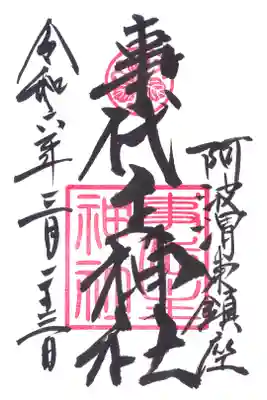 阿波東鎮座
事代主神社
令和六年二月二十三日
事代主
神社